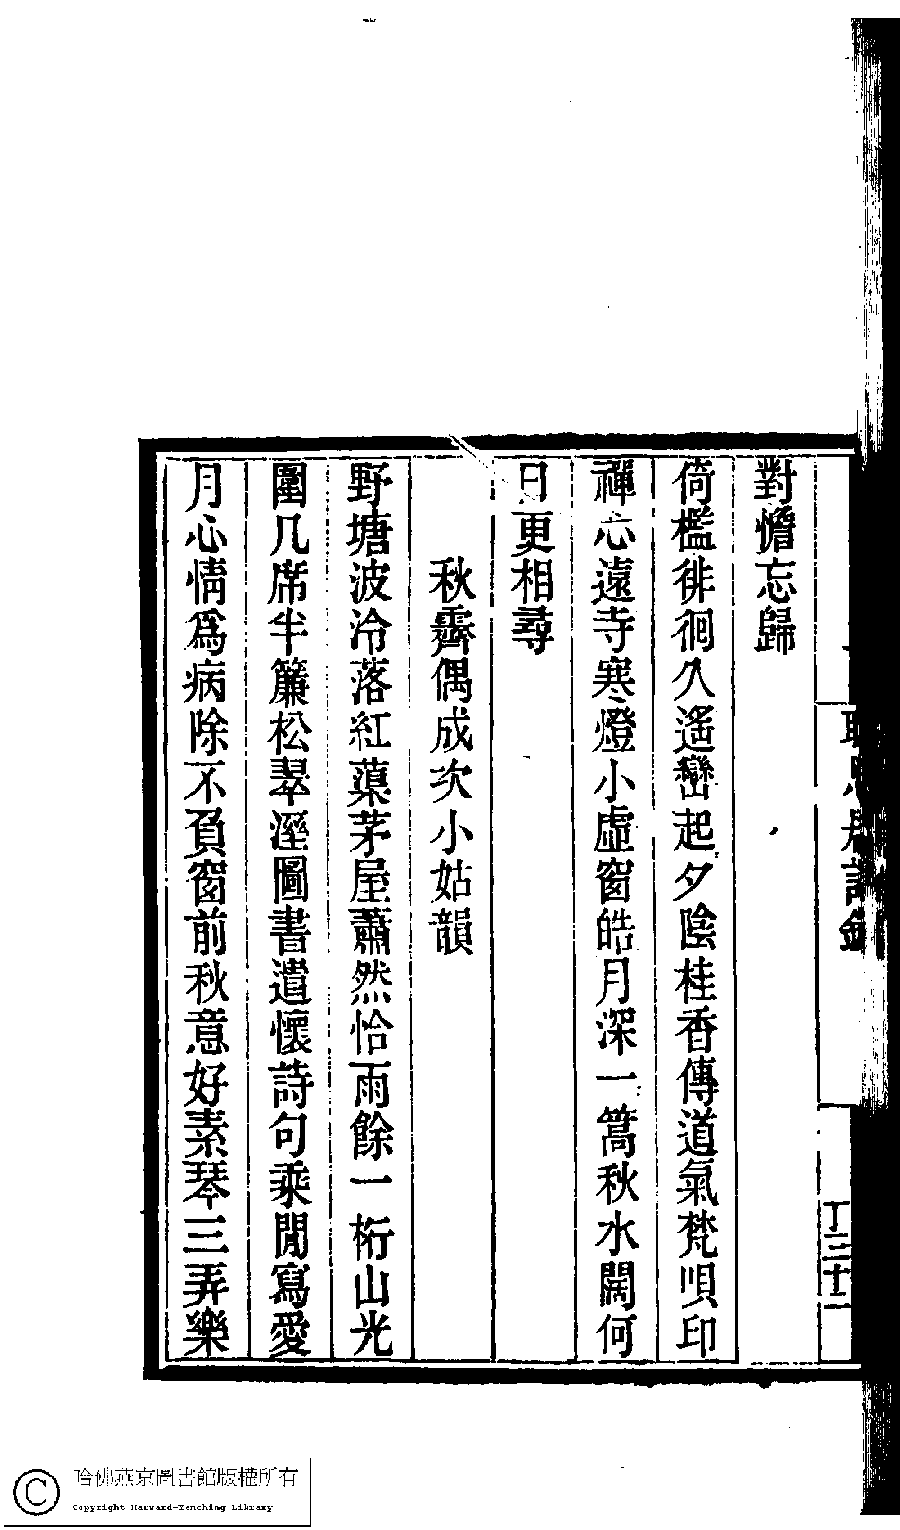 對憺忘歸
倚檻徘徊久遙巒起夕陰桂香傳道氣梵唄印
禪心遠寺寒燈小虛窗皓月深一篙秋水闊何
日更相尋
秋霽偶成次小姑韻
野塘波冷落紅蕖茅屋蕭然恰雨餘一桁山光
圍几席半簾松翠溼圖書遣懷詩句乘閒寫愛
月心情為病除不負窗前秋意好素琴三弄樂
哈佛燕京圖書館版權所有
Copyright Harvard-Yenching Library